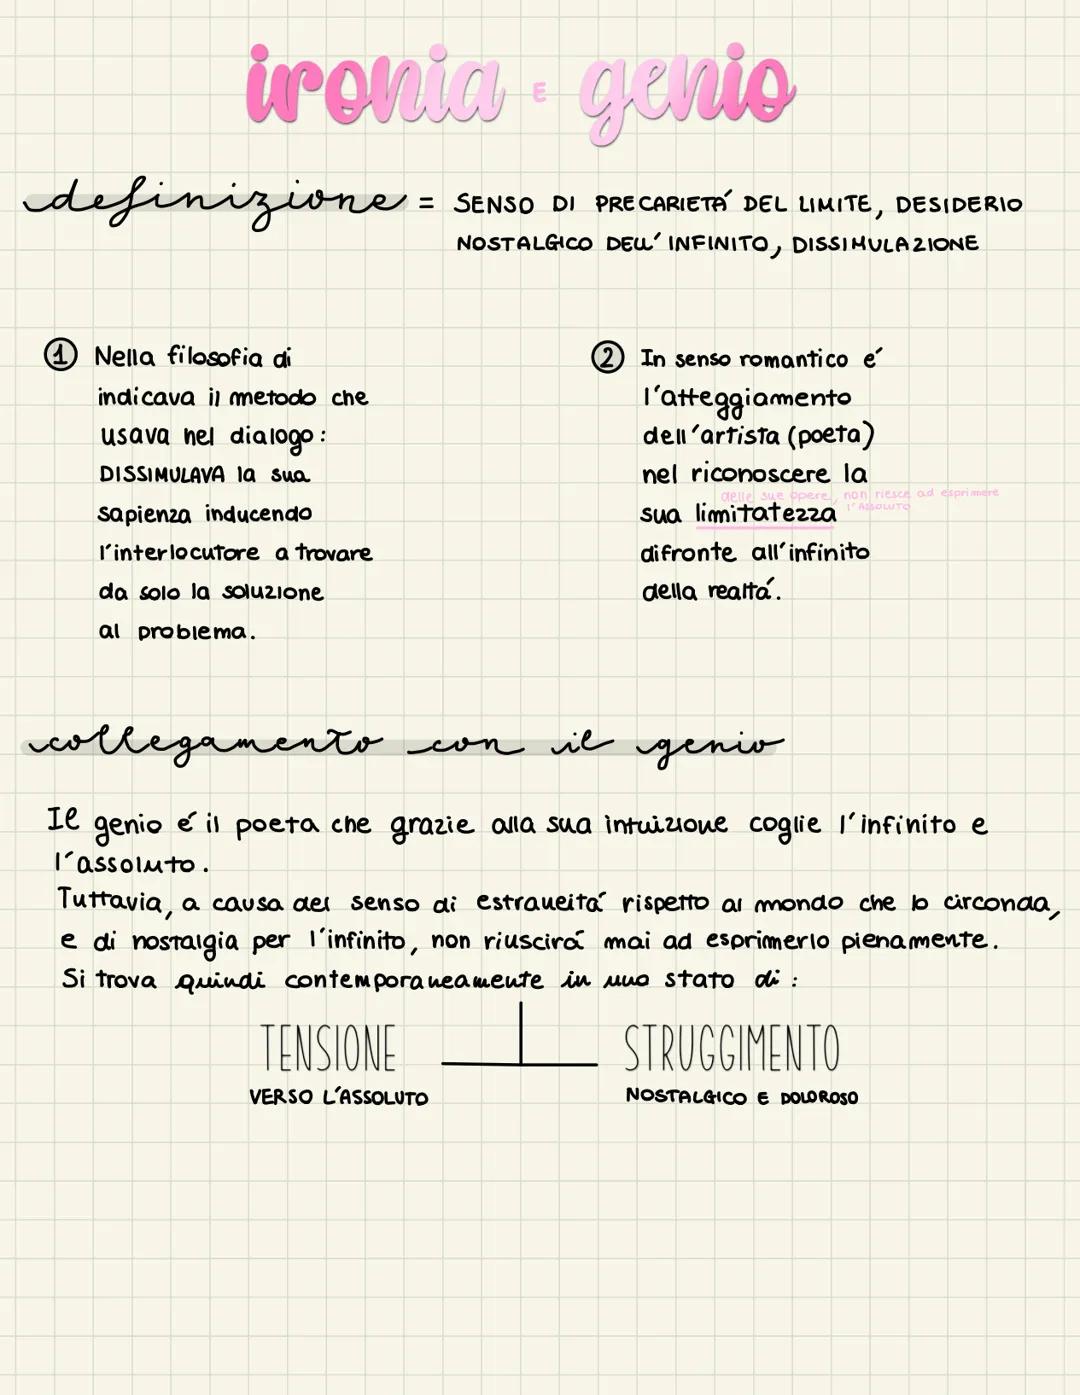 ironia E genio
definizione = SENSO DI PRECARIETÁ DEL LIMITE, DESIDERIO
NOSTALGICO DELL'INFINITO, DISSIMULAZIONE
1 Nella filosofia di
indicava il metodo che
usava nel dialogo:
DISSIMULAVA la sua
sapienza inducendo
l'interlocutore a trovare
da solo la soluzione
al problema.
2 In senso romantico é
l'atteggiamento
dell'artista (poeta)
nel riconoscere la
delle sue opere, non riesce ad esprimere
l'ASSOLUTO
sua limitatezza
difronte all'infinito
della realtá.
collegamento con il genio
Il genio é il poeta che grazie alla sua intuizione coglie l'infinito e
l'assoluto.
Tuttavia, a causa del senso di estraneitá rispetto al mondo che lo circonda,
e di nostalgia per l'infinito, non riuscirá mai ad esprimerlo pienamente.
Si trova quindi contemporaneamente in uno stato di:
TENSIONE STRUGGIMENTO
VERSO L'ASSOLUTO NOSTALGICO E DOLOROSO